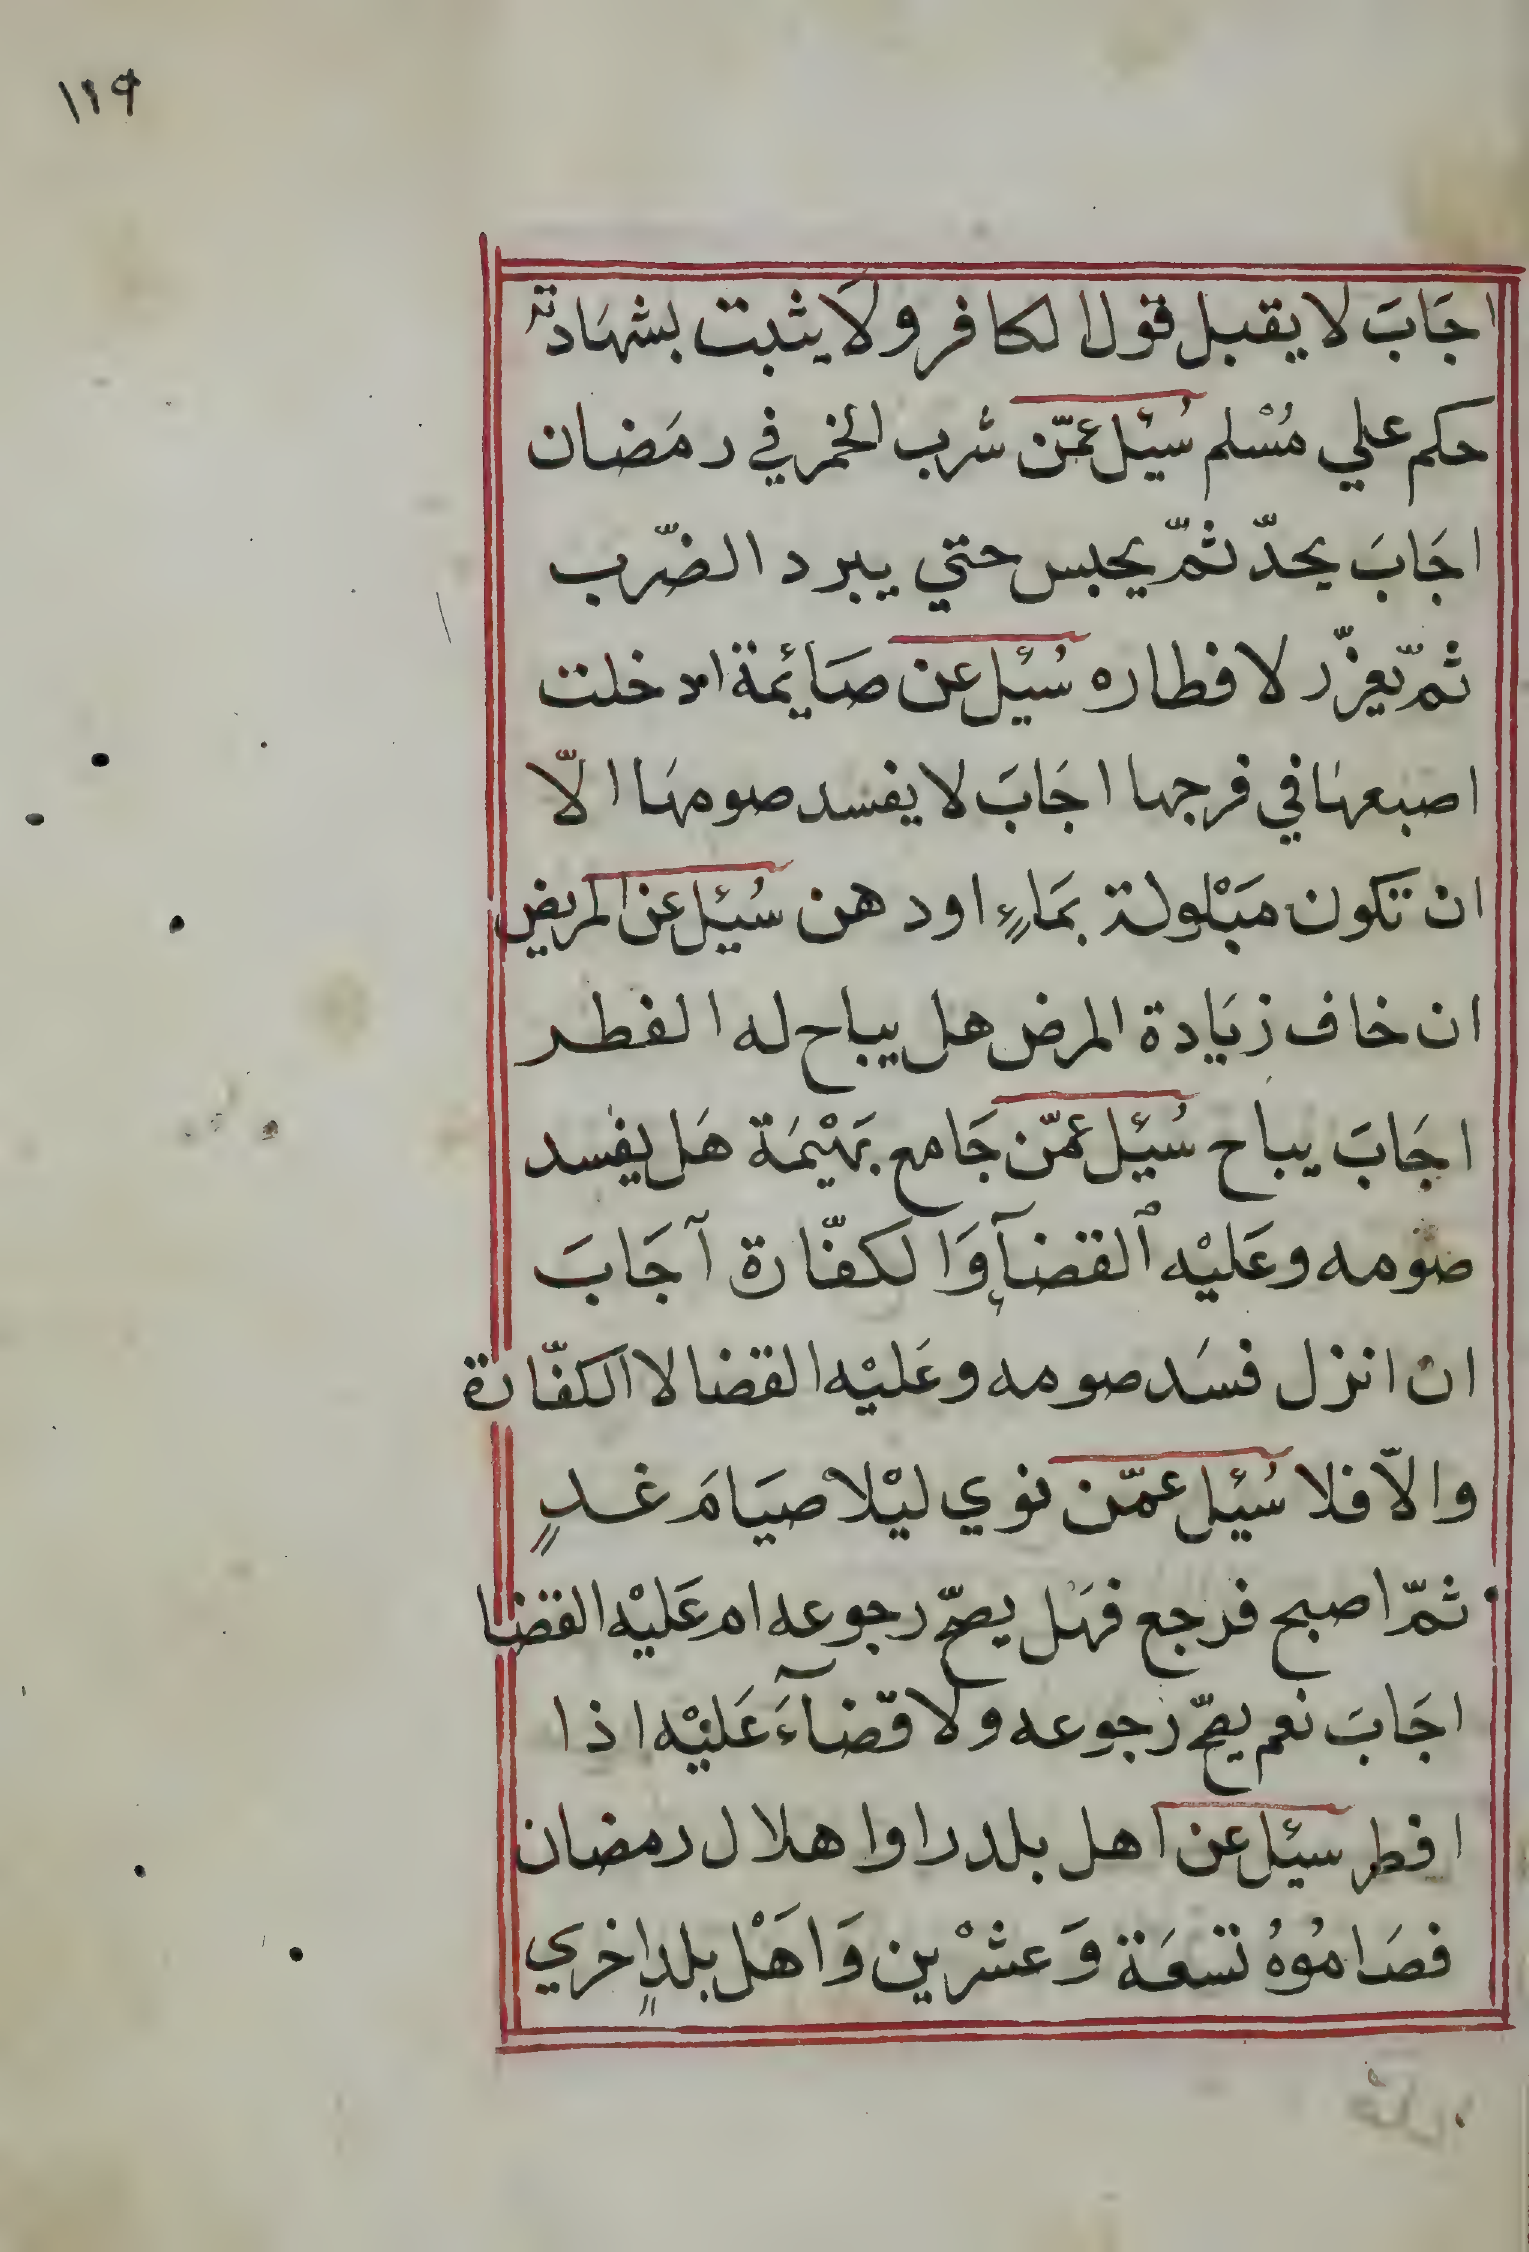 ١١٩
اجَابَ لا يقبل قول الكافر ولَا يثبت بشهادته
حكم علي مُسْلم سُئِل عمّن شرب الخمر في رمَضان
اجَابَ يحدّ ثمّ يحبس حتي يبرد الضّرب
ثمّ يعزّر لافطاره سُئِل عن صَائِمة ادخلت
اصبعهَا في فرجها اجَابَ لا يفسد صومهَا الّا
ان تكون مَبْلولة بمَاءٍ او دهن سُئِل عن المريض
ان خاف زيَادة المرض هل يباح له الفطر
اجَابَ يباح سُئِل عمّن جَامع بَهيْمَة هَل يفسد
صَومه وعَليْه القضآء وَالكفّارة آجَابَ
ان انزل فسَد صومه وعَليْه القضا لا الكفّارة
والّا فلا سُئِل عمّن نوي ليْلا صيَامَ غدٍ
ثمّ اصبح فرجع فهَل يصحّ رجوعه ام عَليْه القضا
اجَابَ نعم يصحّ رجوعه ولا قضآءَ عَليْه اذا
افطر سئِل عن اهل بلد راوا هلال رمضان
فصَامُوهُ تسعَة وَعشرْين وَاهَْل بلدٍ اخري